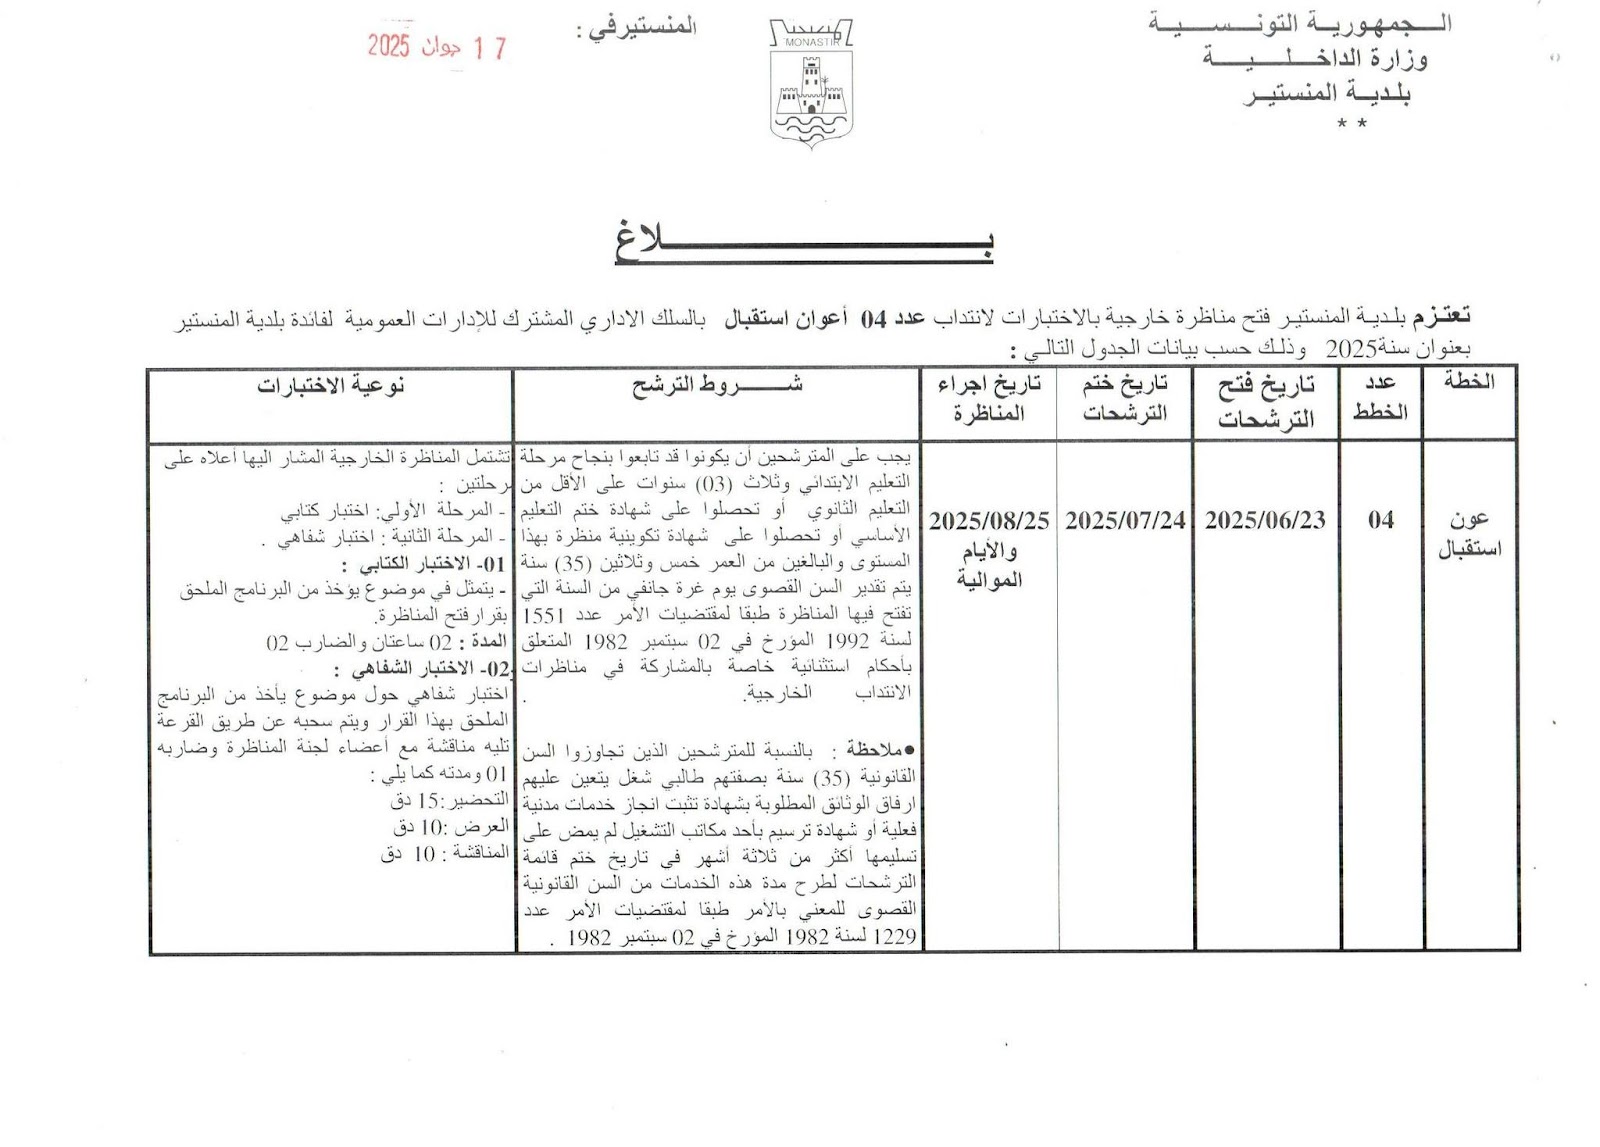 الـجمهوريـة التونـسـيـة
وزارة الداخـلـيـة
بلـديـة المنستيـر
* *
MONASTIR
المنستيرفي :
17 جوان 2025
بـلاغ
تعتـزم بلـديـة المنستيـر فتح مناظرة خارجية بالاختبارات لانتداب عدد 04 أعوان استقبال بالسلك الاداري المشترك للإدارات العمومية لفائدة بلدية المنستير
بعنوان سنة2025 وذلـك حسب بيانات الجدول التالـي :
الخطة
عدد
الخطط
تاريخ فتح
الترشحات
تاريخ ختم
الترشحات
تاريخ اجراء
المناظرة
شـــروط الترشح
نوعية الاختبارات
عون
استقبال
04
2025/06/23
2025/07/24
2025/08/25
والأيام
الموالية
يجب على المترشحين أن يكونوا قد تابعوا بنجاح مرحلة
التعليم الابتدائي وثلاث (03) سنوات على الأقل من
التعليم الثانوي أو تحصلوا على شهادة ختم التعليم
الأساسي أو تحصلوا على شهادة تكوينية منظرة بهذا
المستوى والبالغين من العمر خمس وثلاثين (35) سنة
يتم تقدير السن القصوى يوم غرة جانفي من السنة التي
تفتح فيها المناظرة طبقا لمقتضيات الأمر عدد 1551
لسنة 1992 المؤرخ في 02 سبتمبر 1982 المتعلق
بأحكام استثنائية خاصة بالمشاركة في مناظرات
الانتداب الخارجية. .
●ملاحظة : بالنسبة للمترشحين الذين تجاوزوا السن
القانونية (35) سنة بصفتهم طالبي شغل يتعين عليهم
ارفاق الوثائق المطلوبة بشهادة تثبت انجاز خدمات مدنية
فعلية أو شهادة ترسيم بأحد مكاتب التشغيل لم يمض على
تسليمها أكثر من ثلاثة أشهر في تاريخ ختم قائمة
الترشحات لطرح مدة هذه الخدمات من السن القانونية
القصوى للمعني بالأمر طبقا لمقتضيات الأمر عدد
1229 لسنة 1982 المؤرخ في 02 سبتمبر 1982 .
تشتمل المناظرة الخارجية المشار اليها أعلاه على
مرحلتين :
- المرحلة الأولي: اختبار كتابي
- المرحلة الثانية : اختبار شفاهي .
01- الاختبار الكتابي :
- يتمثل في موضوع يؤخذ من البرنامج الملحق
بقرارفتح المناظرة.
المدة : 02 ساعتان والضارب 02
02- الاختبار الشفاهي :
اختبار شفاهي حول موضوع يأخذ من البرنامج
الملحق بهذا القرار ويتم سحبه عن طريق القرعة
تليه مناقشة مع أعضاء لجنة المناظرة وضاربه
01 ومدته كما يلي :
التحضير:15 دق
العرض :10 دق
المناقشة : 10 دق